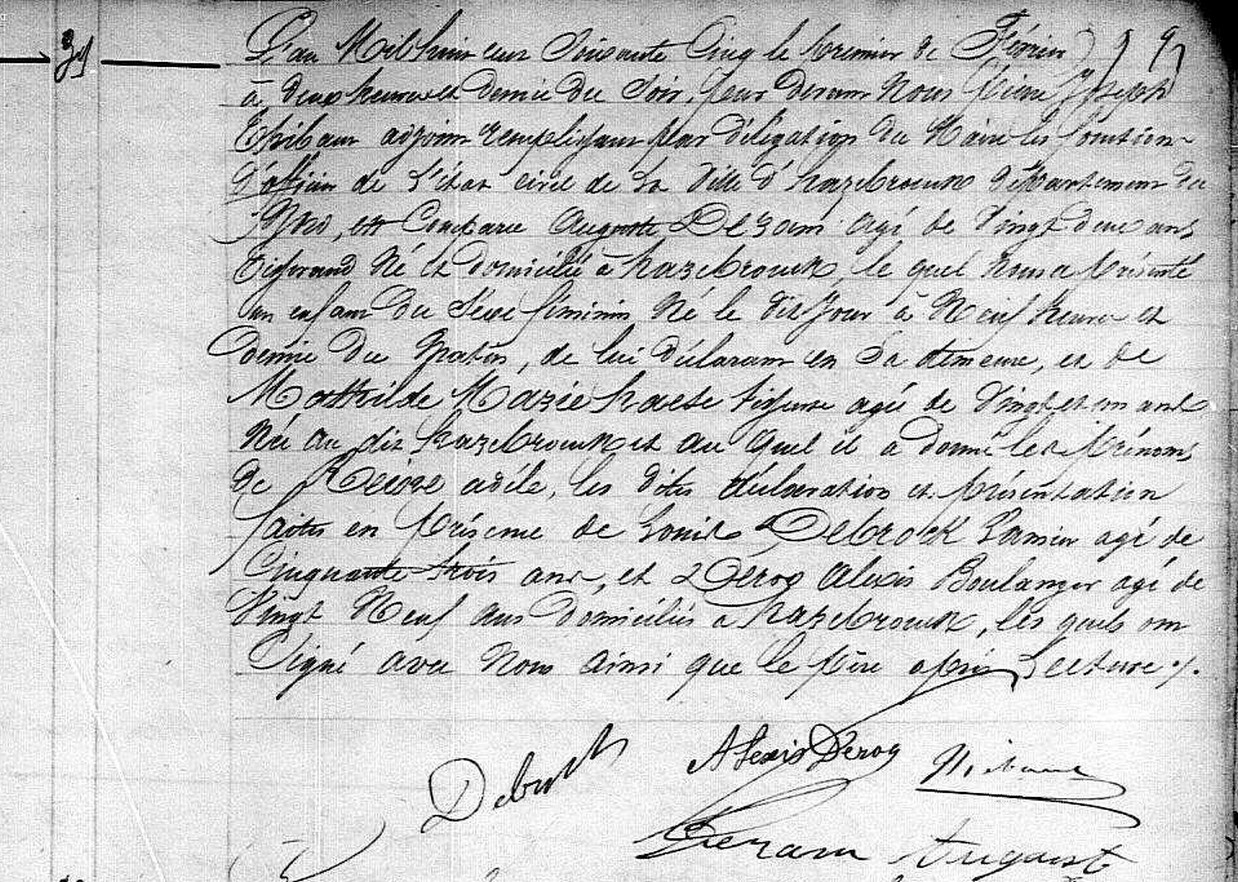 31
L'an Mil huit cent Soixante Cinq le premier de Février
à deux heures et demie du Soir, par devant Nous Pierre Joseph
adjoint remplissant par délégation du Maire les fonctions
d'officier de l'état civil de la Ville d'hazebrouck département du
Nord, est Comparu Auguste Dezam agé de Vingt deux ans
tisserand Né et domicilié à hazebrouck, le quel Nous a présenté
un enfant du Sexe féminin Né le dit Jour à Neuf heures et
demie du Matin, de lui déclarant en Sa demeure, et de
Mathilde Marie haese tisseuse agé de Vingt et un ans
Née au dit hazebrouck et au quel il a donné les prénoms
de adéle, les dites déclaration et présentation
faites en présence de Louis Debrock agé de
Cinquante trois ans, et Deroo Alexis Boulanger agé de
Vingt Neuf ans Domiciliés à hazebrouck, les quels ont
Signé avec Nous ainsi que le père après Lecture ./.
Alexis Deroo
Dezam August